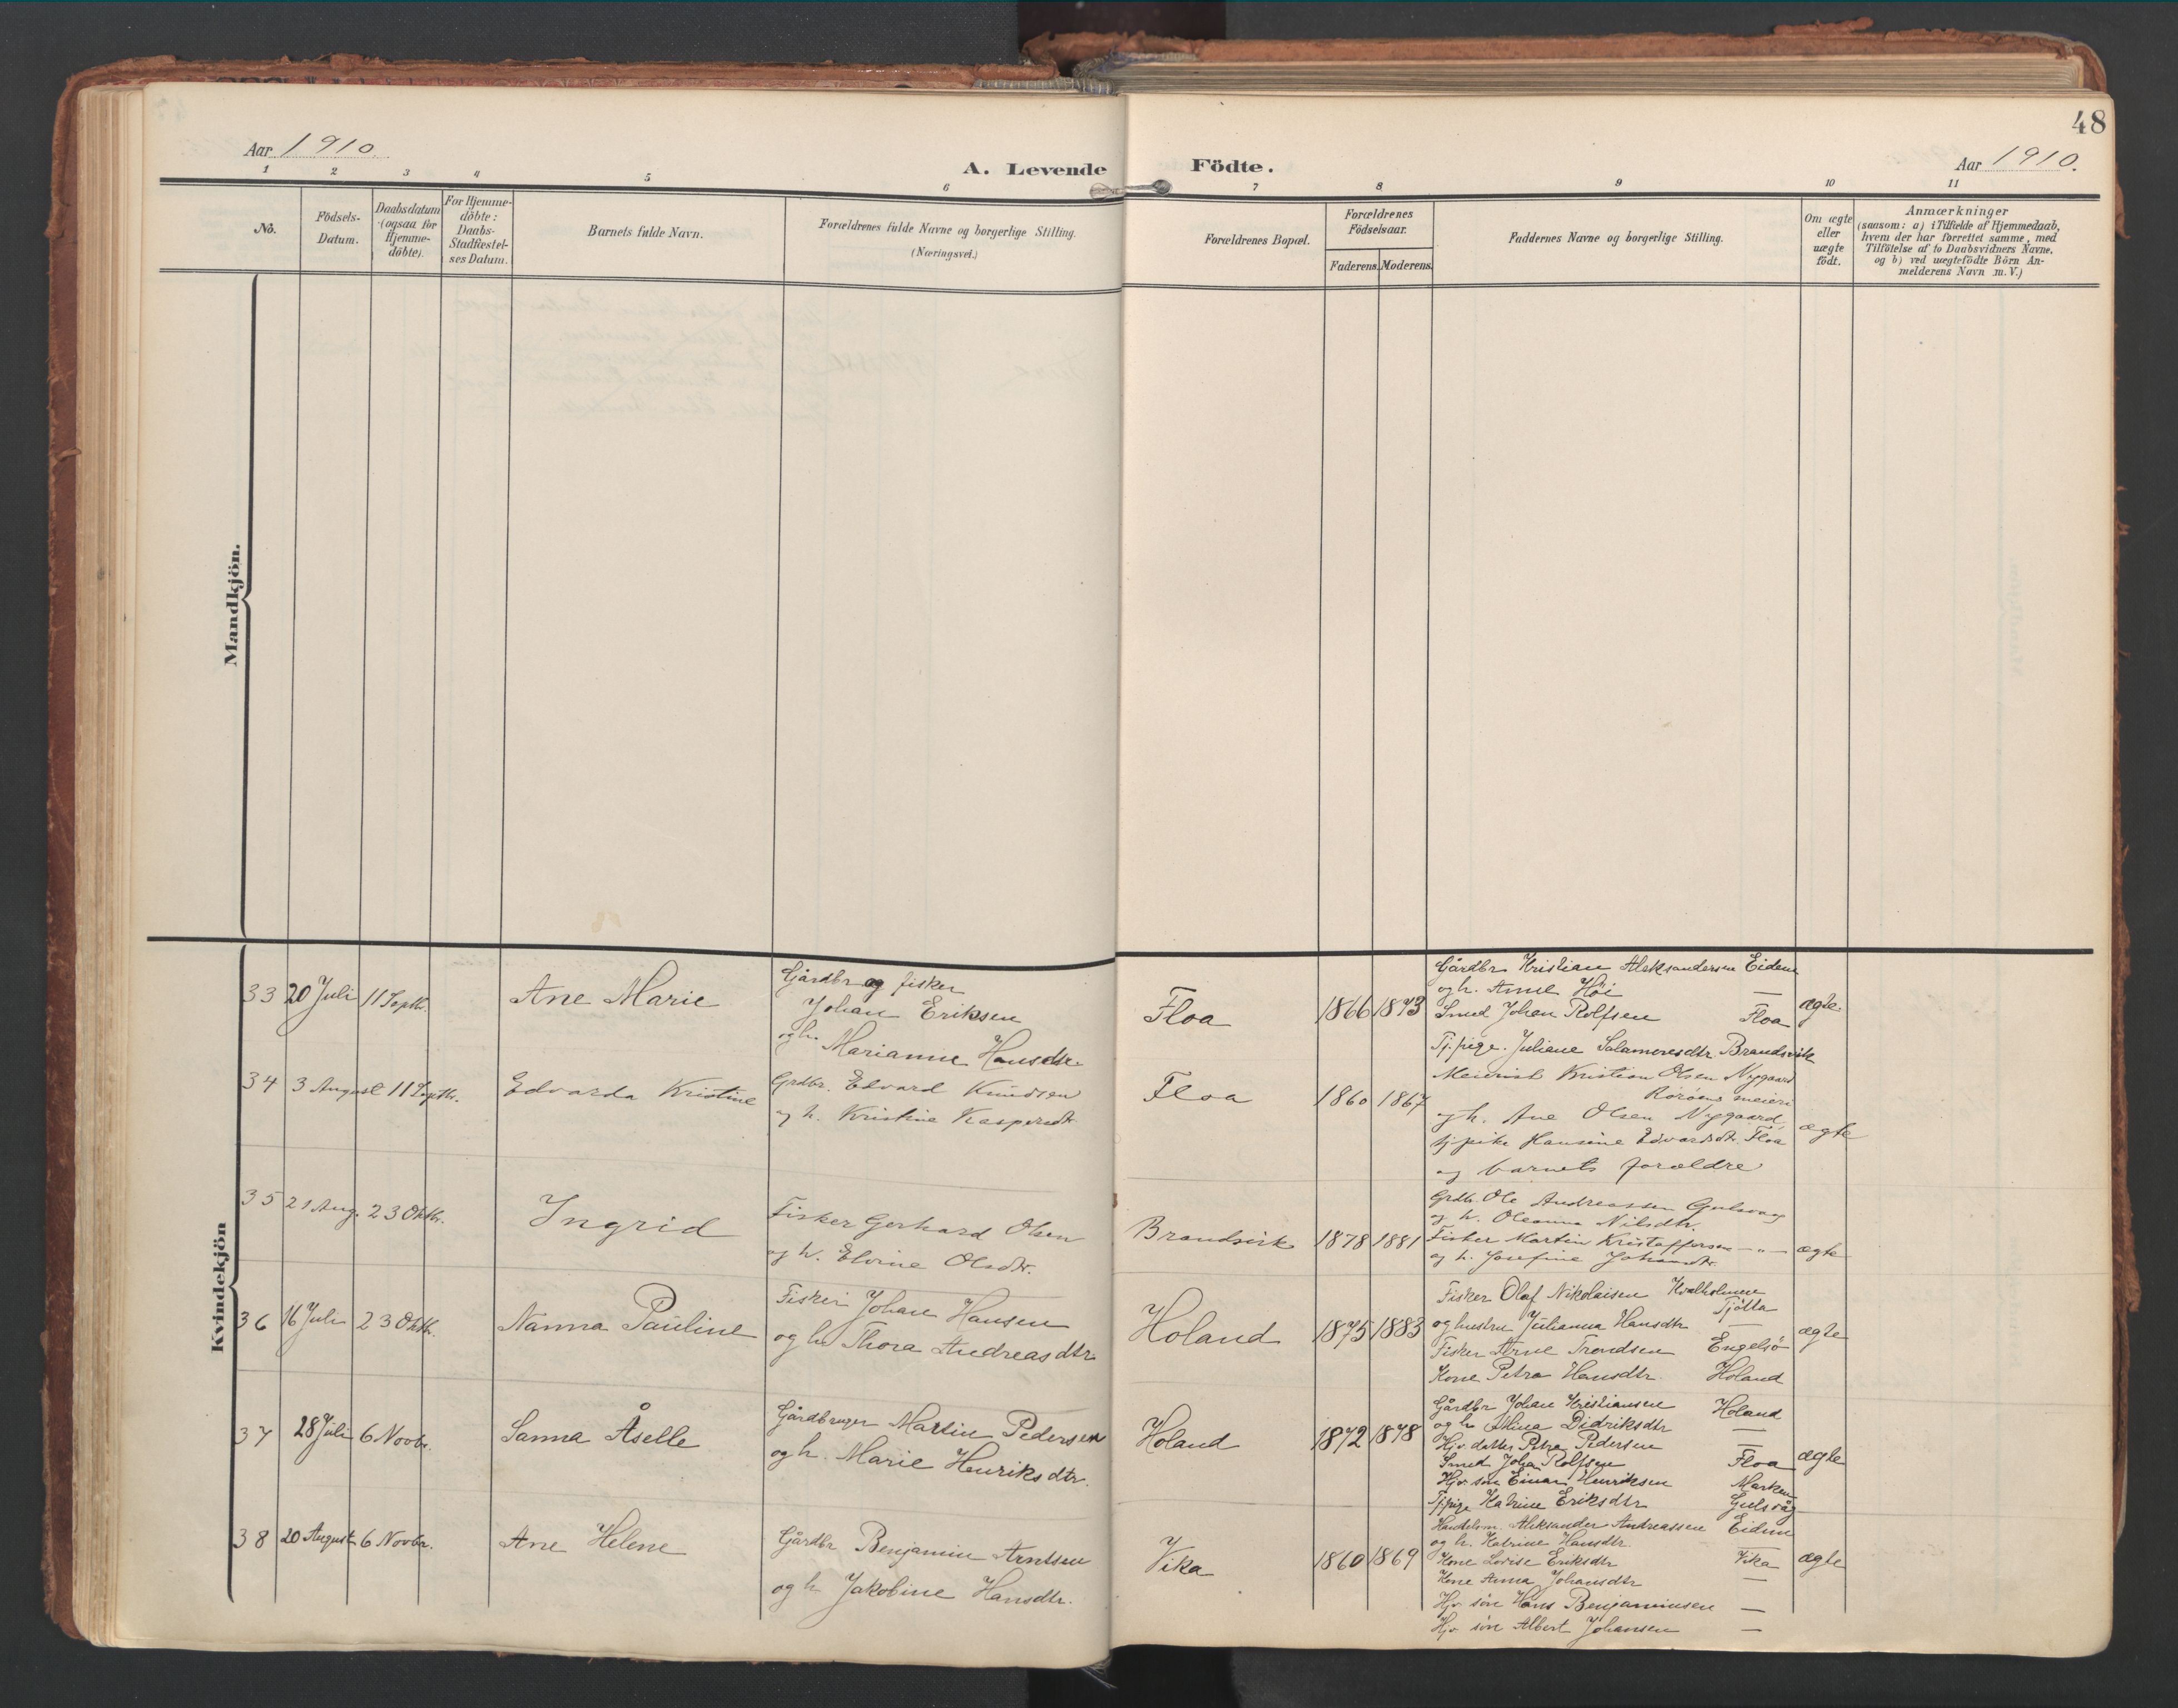 48
Aar 1910.
A. Levende Födte.
Aar 1910.
1 2 3 4 5 6 7 8 9 10 11
No.
Födsels-
Datum.
Daabsdatum
(ogsaa for
Hjemme-
döbte).
For Hjemme-
döbte:
Daabs-
Stadfæstel-
ses Datum.
Barnets fulde Navn.
Forældrenes fulde Navne og borgerlige Stilling.
(Næringsvei.)
Forældrenes Bopæl.
Forældrenes
Födselsaar.
Faderens. Moderens.
Faddernes Navne og borgerlige Stilling.
Om ægte
eller
uægte
födt.
Anmærkninger
(saasom: a) i Tilfælde af Hjemmedaab,
hvem der har forrettet samme, med
Tilföielse af to Daabsvidners Navne,
og b) ved uægtefödte Börn An-
melderens Navn m. V.)
Mandkjön.
Kvindekjön
33 20 Juli 11 Septbr. Ane Marie
Gårdbr og fisker
Johan Eriksen
og h. Marianne Hansdtr
Floa 1866 1873
Gårdbr Kristian Aleksandersen Eidem
og h. Anne Höi —
Smed Johan Rolfsen Floa
Tj. pige. Juliane Salamonsdtr Brandsvik
ægte
34 3 August 11 Septbr. Edvarda Kristine
Grdbr. Edvard Knudsen
og h. Kristine Kaspersdtr
Floa 1860 1867
Meierist Kristian Olsen Nygaard
Rörøens meieri
og h. Ane Olsen Nygaard
tj pike Hansine Edvardsdtr. Floa
og barnets forældre
ægte
35 21 Aug. 23 Oktbr. Ingrid
Fisker Gerhard Olsen
og h. Elvine Olsdtr.
Brandsvik 1878 1881
Grdbr. Ole Andreassen Gulsvaag
og h. Oleanna Nilsdtr.
Fisker Martin Kristoffersen — " —
og h. Josefine Johansdtr.
ægte
36 16 Juli 23 Oktbr. Nanna Pauline
Fisker Johan Hansen
og h. Thora Andreasdtr
Holand 1875 1883
Fisker Olaf Nikolaisen Kvalholmen
Tjötta
og hustru Julianna Hansdtr —
Fisker Arne Trondsen Engelsö
Kone Petra Hansdtr. Holand
ægte
37 28 Juli 6 Novbr. Sanna Åselle
Gårdbruger Martin Pedersen
og h. Marie Henriksdtr.
Holand 1872 1878
Gårdbr Johan Kristiansen Holand
og h Didriksdtr —
Hjv. datter Petra Pedersen
Smed Johan Rolfsen Floa
Hjv. søn Einar Henriksen Marken
Tj.pige Katrine Eriksdtr Gulsvåg
ægte
38 20 August 6 Novbr. Ane Helene
Gårdbr Benjamin Arntsen
og h Jakobine Hansdtr.
Vika 1860 1869
Handelsm. Aleksander Andreassen Eidem
og h. Katrine Hansdtr. —
Kone Lovise Eriksdtr Vika
Kone Anna Johansdtr —
Hjv. sön Hans Benjaminsen —
Hjv. sön Albert Johansen —
ægte